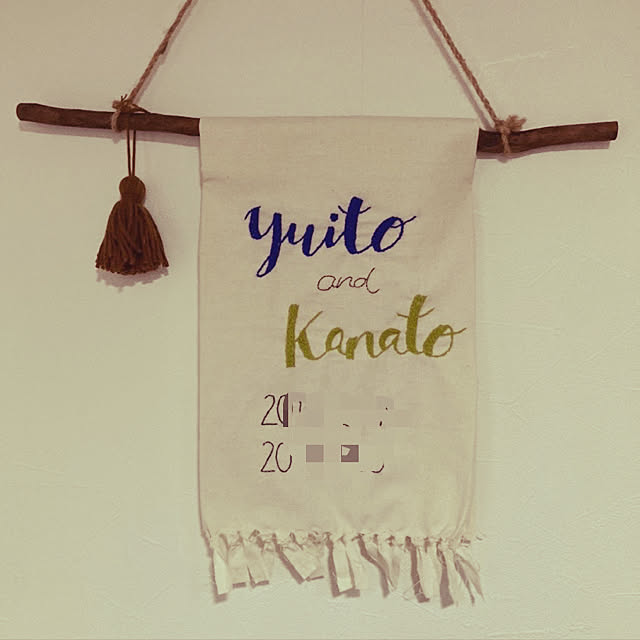 Yuito
and
Kanato
20
20